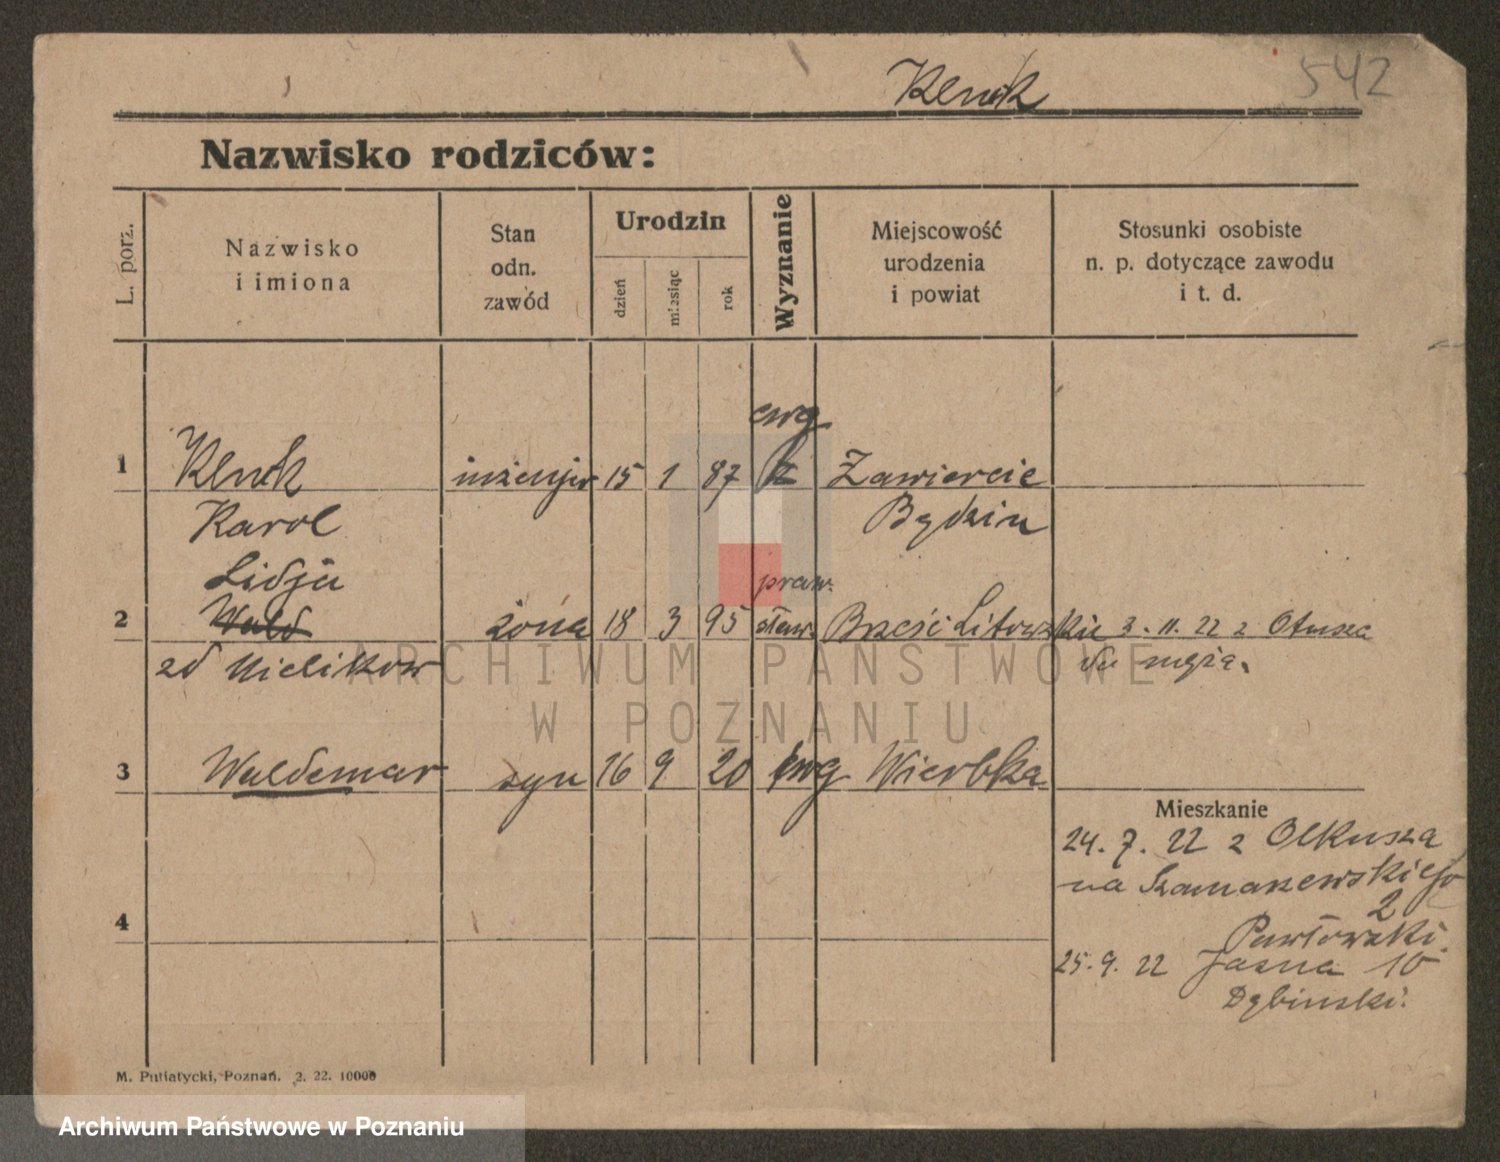 Klenk 542
Nazwisko rodziców:
L. porz.
Nazwisko
i imiona
Stan
odn.
zawód
Urodzin
dzień
miesiąc
rok
Wyznanie
Miejscowość
urodzenia
i powiat
Stosunki osobiste
n. p. dotyczące zawodu
i t. d.
ewg
1 Klenk inżenjer 15 1 87 Zawiercie
Karol Będzin
Lidja praw.
2 Wald żona 18 3 95 sław. Brześć Litowskie 3. 11. 22 z Otusza
zd Nielikow do męża.
ARCHIWUM PAŃSTWOWE
W POZNANIU
3 Waldemar syn 16 9 20 ewg Wierbka
Mieszkanie
24. 7. 22 z Olkusza
na Szamarzewskiego
2
4 Pawłowski.
25. 9. 22 Jasna 10
Dębinski.
M. Putiatycki, Poznań. 2. 22. 10000
Archiwum Państwowe w Poznaniu